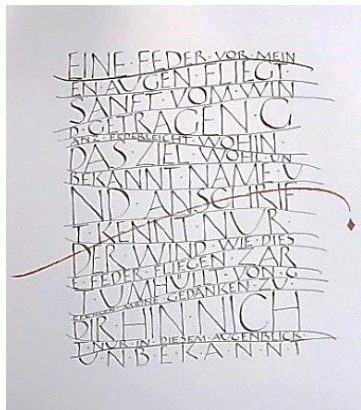 EINE·FEDER·VOR·MEIN
EN·AUGEN·FLIEGT
SANFT·VOM·WIN
D·GETRAGEN·G
ANZ·FEDERLEICHT·WOHIN·
DAS·ZIEL·WOHL·UN
BEKANNT·NAME·U
ND·ANSCHRIF
T·KENNT·NUR
DER·WIND·WIE·DIES
E·FEDER·FLIEGEN·ZAR
T·UMHÜLLT·VON·G
MEINE·GEDANKEN·ZU·
DIR·HIN·NICH
T·NUR·IN·DIESEM·AUGENBLICK·
UNBEKANNT